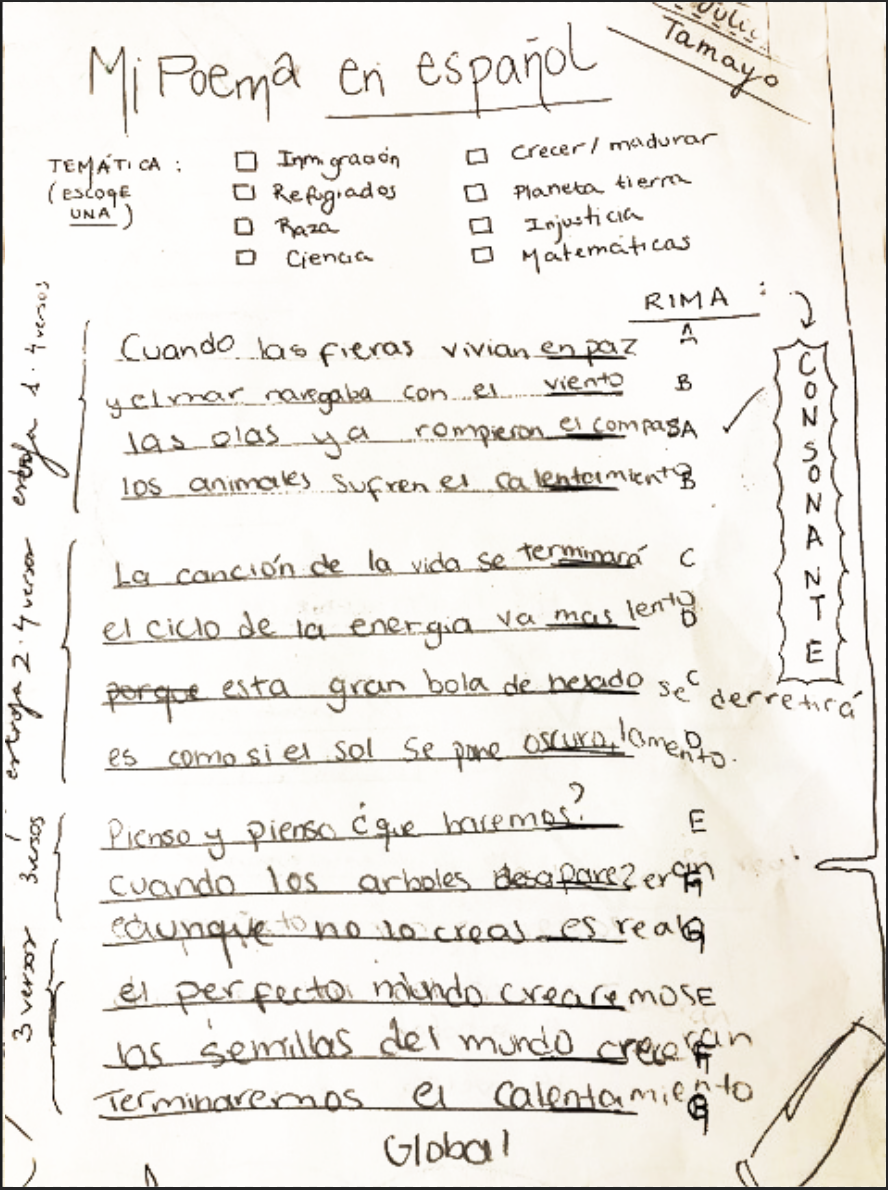 Julia
Tamayo
Mi Poema en español
TEMÁTICA :
(ESCOGE
UNA)
Inmigración
Refugiados
Raza
Ciencia
Crecer / madurar
Planeta tierra
Injusticia
Matemáticas
RIMA :
CONSONANTE
estrofa 1. 4 versos
Cuando las fieras vivian en paz A
y el mar navegaba con el viento B
las olas ya rompieron el compas A
los animales sufren el calentamiento B
estrofa 2. 4 versos
La canción de la vida se terminará C
el ciclo de la energia va mas lento D
porque esta gran bola de helado se derretirá C
es como si el sol se pone oscuro, lamento. D
3 versos
Pienso y pienso ¿que haremos? E
cuando los arboles desaparezeran F
aunque no lo creas es real G
3 versos
el perfecto mundo crearemos E
las semillas del mundo creceran F
Terminaremos el calentamiento G
Global